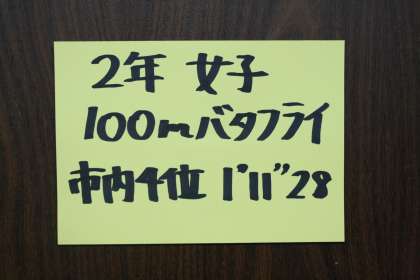 2年 女子
100mバタフライ
市内4位 1'11"28